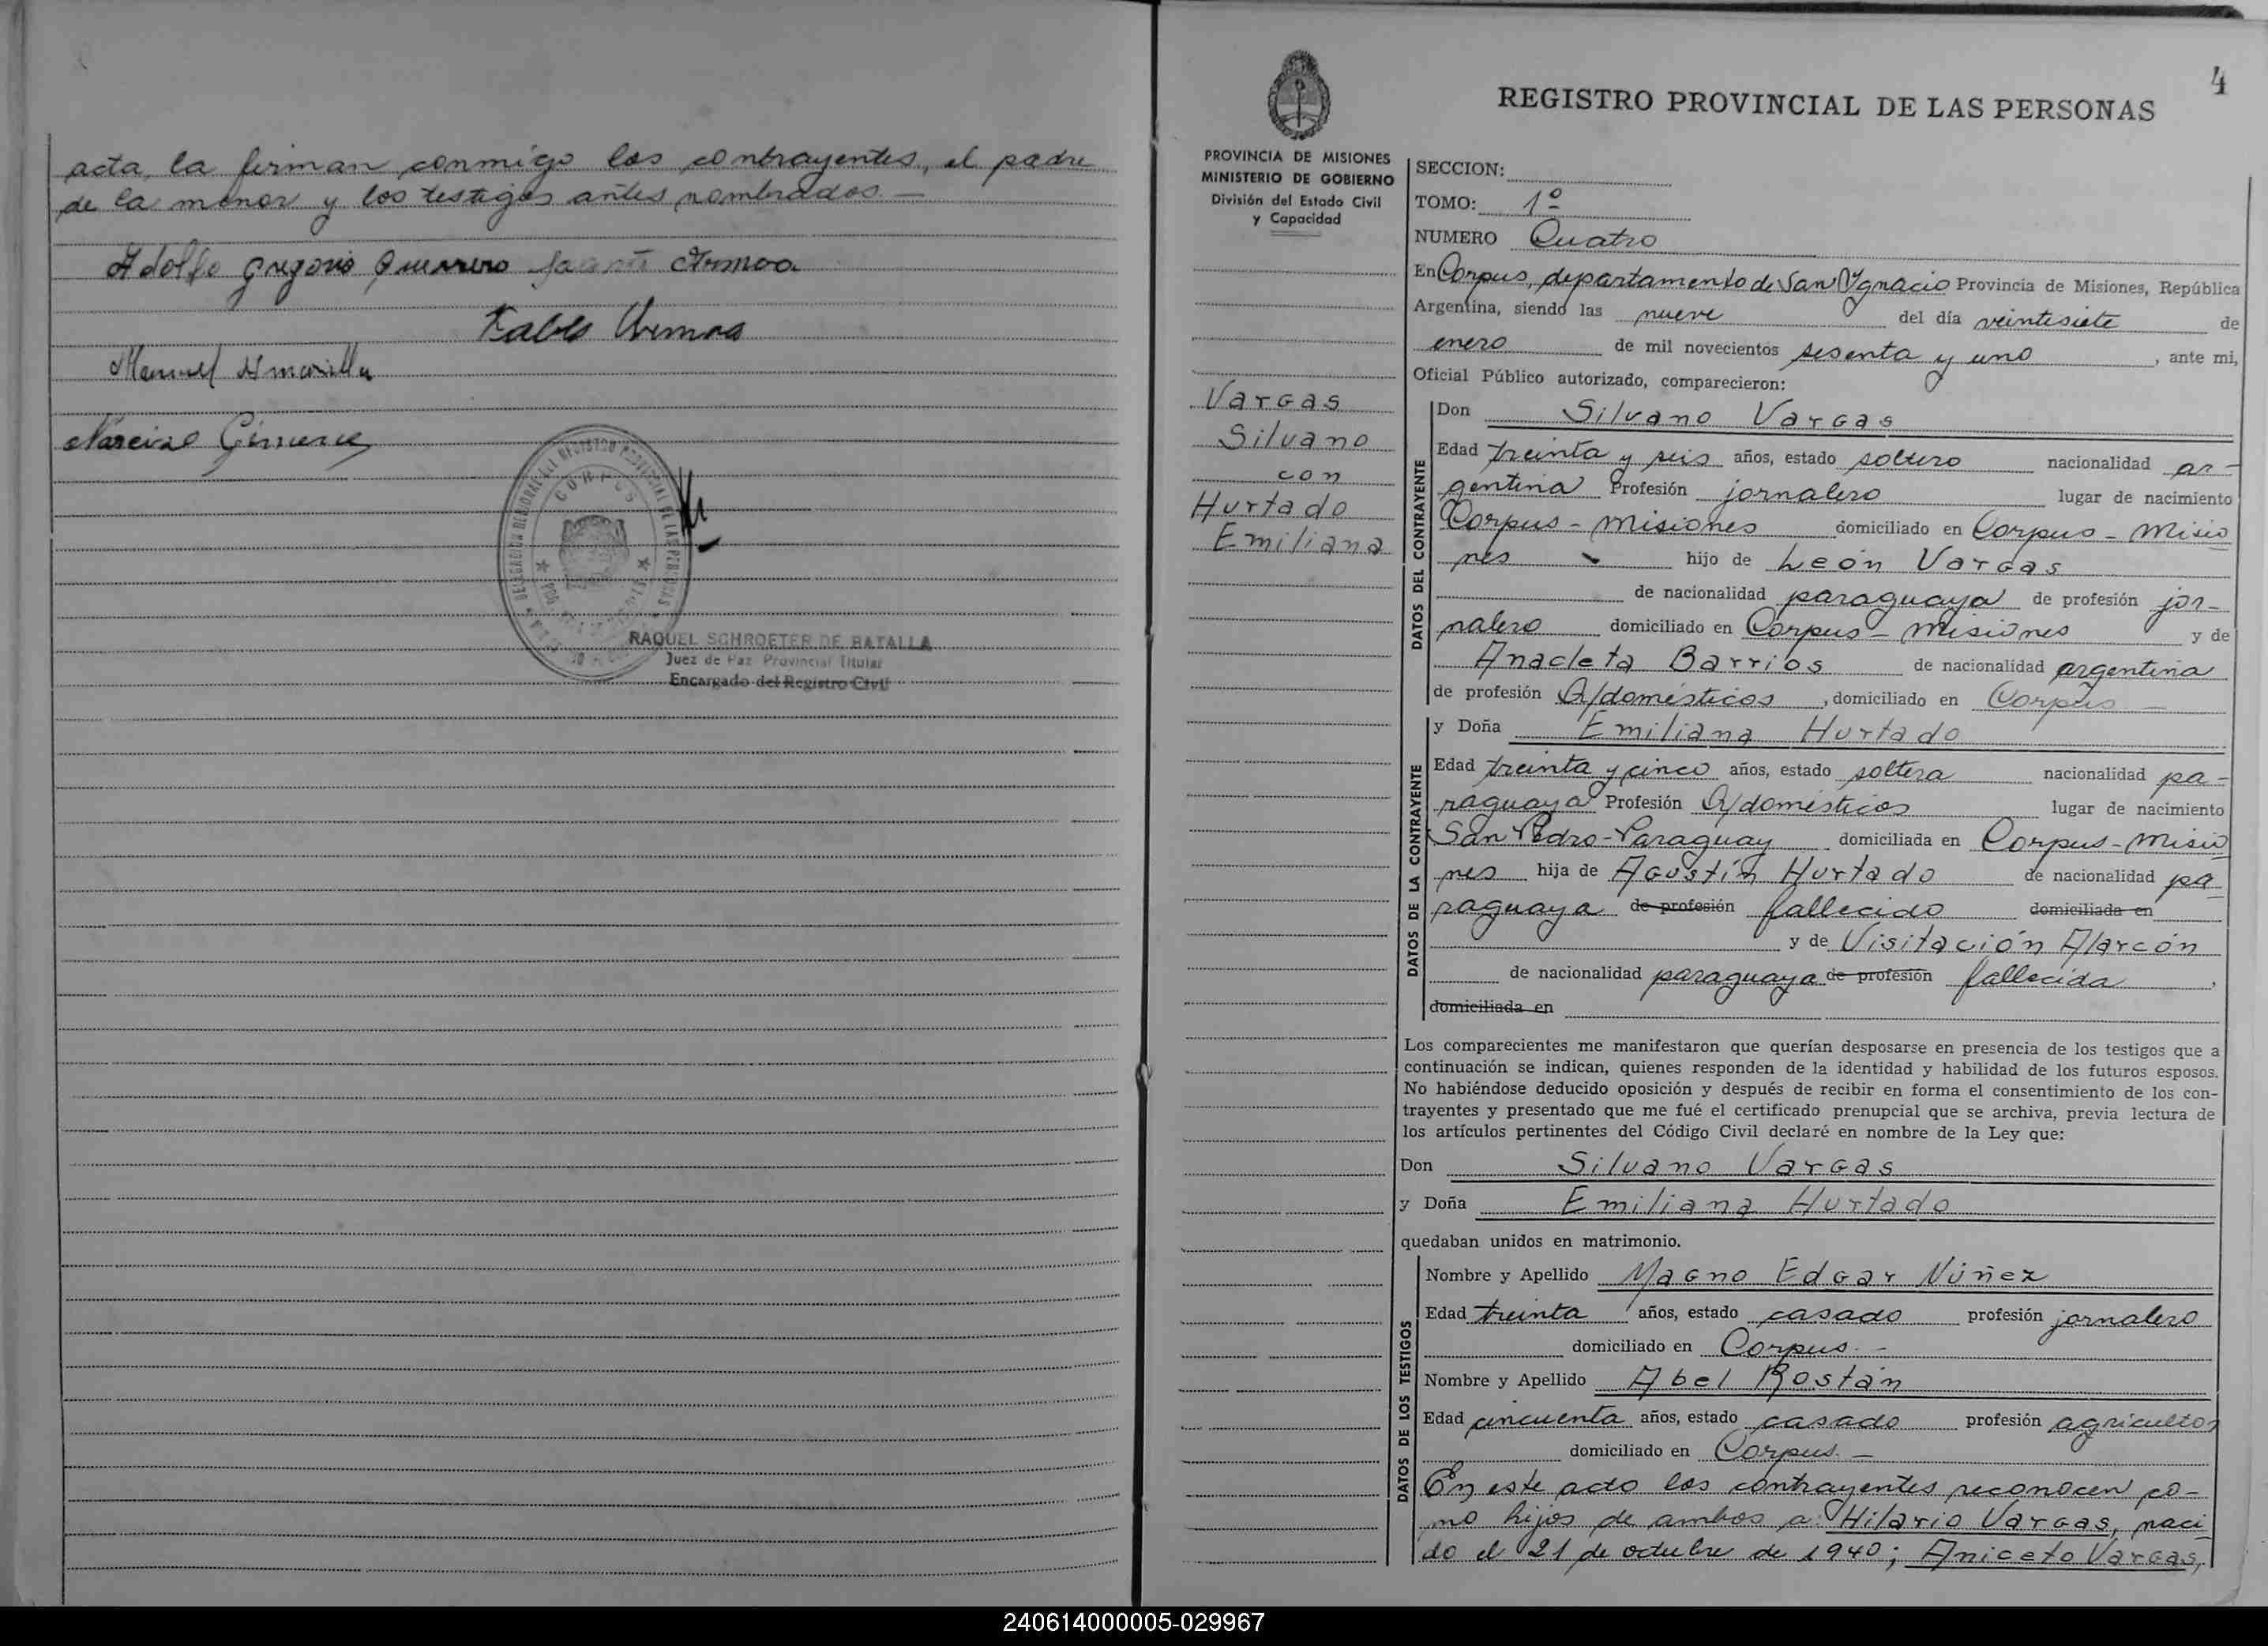 acta, la firman conmigo los contrayentes, el padre
de la menor y los testigos antes nombrados.—
Adolfo Gregorio Guerrero Armoa
Pablo Armoa
Manuel
Narciso
CORPUS
RAQUEL SCHROETER DE BATALLA
Juez de Paz Provincial Titular
Encargado del Registro Civil
4
REGISTRO PROVINCIAL DE LAS PERSONAS
PROVINCIA DE MISIONES
MINISTERIO DE GOBIERNO
División del Estado Civil
y Capacidad
Vargas
Silvano
con
Hurtado
Emiliana
SECCION:
TOMO: 1º
NUMERO Cuatro
En Corpus, departamento de San Ygnacio Provincia de Misiones, República
Argentina, siendo las nueve del día veintisiete de
enero de mil novecientos sesenta y uno, ante mi,
Oficial Público autorizado, comparecieron:
DATOS DEL CONTRAYENTE
Don Silvano Vargas
Edad treinta y seis años, estado soltero nacionalidad ar-
gentina Profesión jornalero lugar de nacimiento
Corpus - Misiones domiciliado en Corpus - Misio
nes hijo de León Vargas
de nacionalidad paraguaya de profesión jor-
nalero domiciliado en Corpus - Misiones y de
Anacleta Barrios de nacionalidad argentina
de profesión Q/domésticos, domiciliado en Corpus —
DATOS DE LA CONTRAYENTE
y Doña Emiliana Hurtado
Edad treinta y cinco años, estado soltera nacionalidad pa-
raguaya Profesión Q/domésticos lugar de nacimiento
San Pedro - Paraguay domiciliada en Corpus - Misio
nes hija de Agustín Hurtado de nacionalidad pa-
raguaya de profesión fallecido domiciliada en
y de Visitación Alarcón
de nacionalidad paraguaya de profesión fallecida,
domiciliada en
Los comparecientes me manifestaron que querían desposarse en presencia de los testigos que a
continuación se indican, quienes responden de la identidad y habilidad de los futuros esposos.
No habiéndose deducido oposición y después de recibir en forma el consentimiento de los con-
trayentes y presentado que me fué el certificado prenupcial que se archiva, previa lectura de
los artículos pertinentes del Código Civil declaré en nombre de la Ley que:
Don Silvano Vargas
y Doña Emiliana Hurtado
quedaban unidos en matrimonio.
DATOS DE LOS TESTIGOS
Nombre y Apellido Magno Edgar Núñez
Edad treinta años, estado casado profesión jornalero
domiciliado en Corpus.—
Nombre y Apellido Abel Rostán
Edad cincuenta años, estado casado profesión agricultor
domiciliado en Corpus.—
En este acto los contrayentes reconocen co-
mo hijos de ambos a: Hilario Vargas, naci
do el 21 de octubre de 1940; Aniceto Vargas,
240614000005-029967